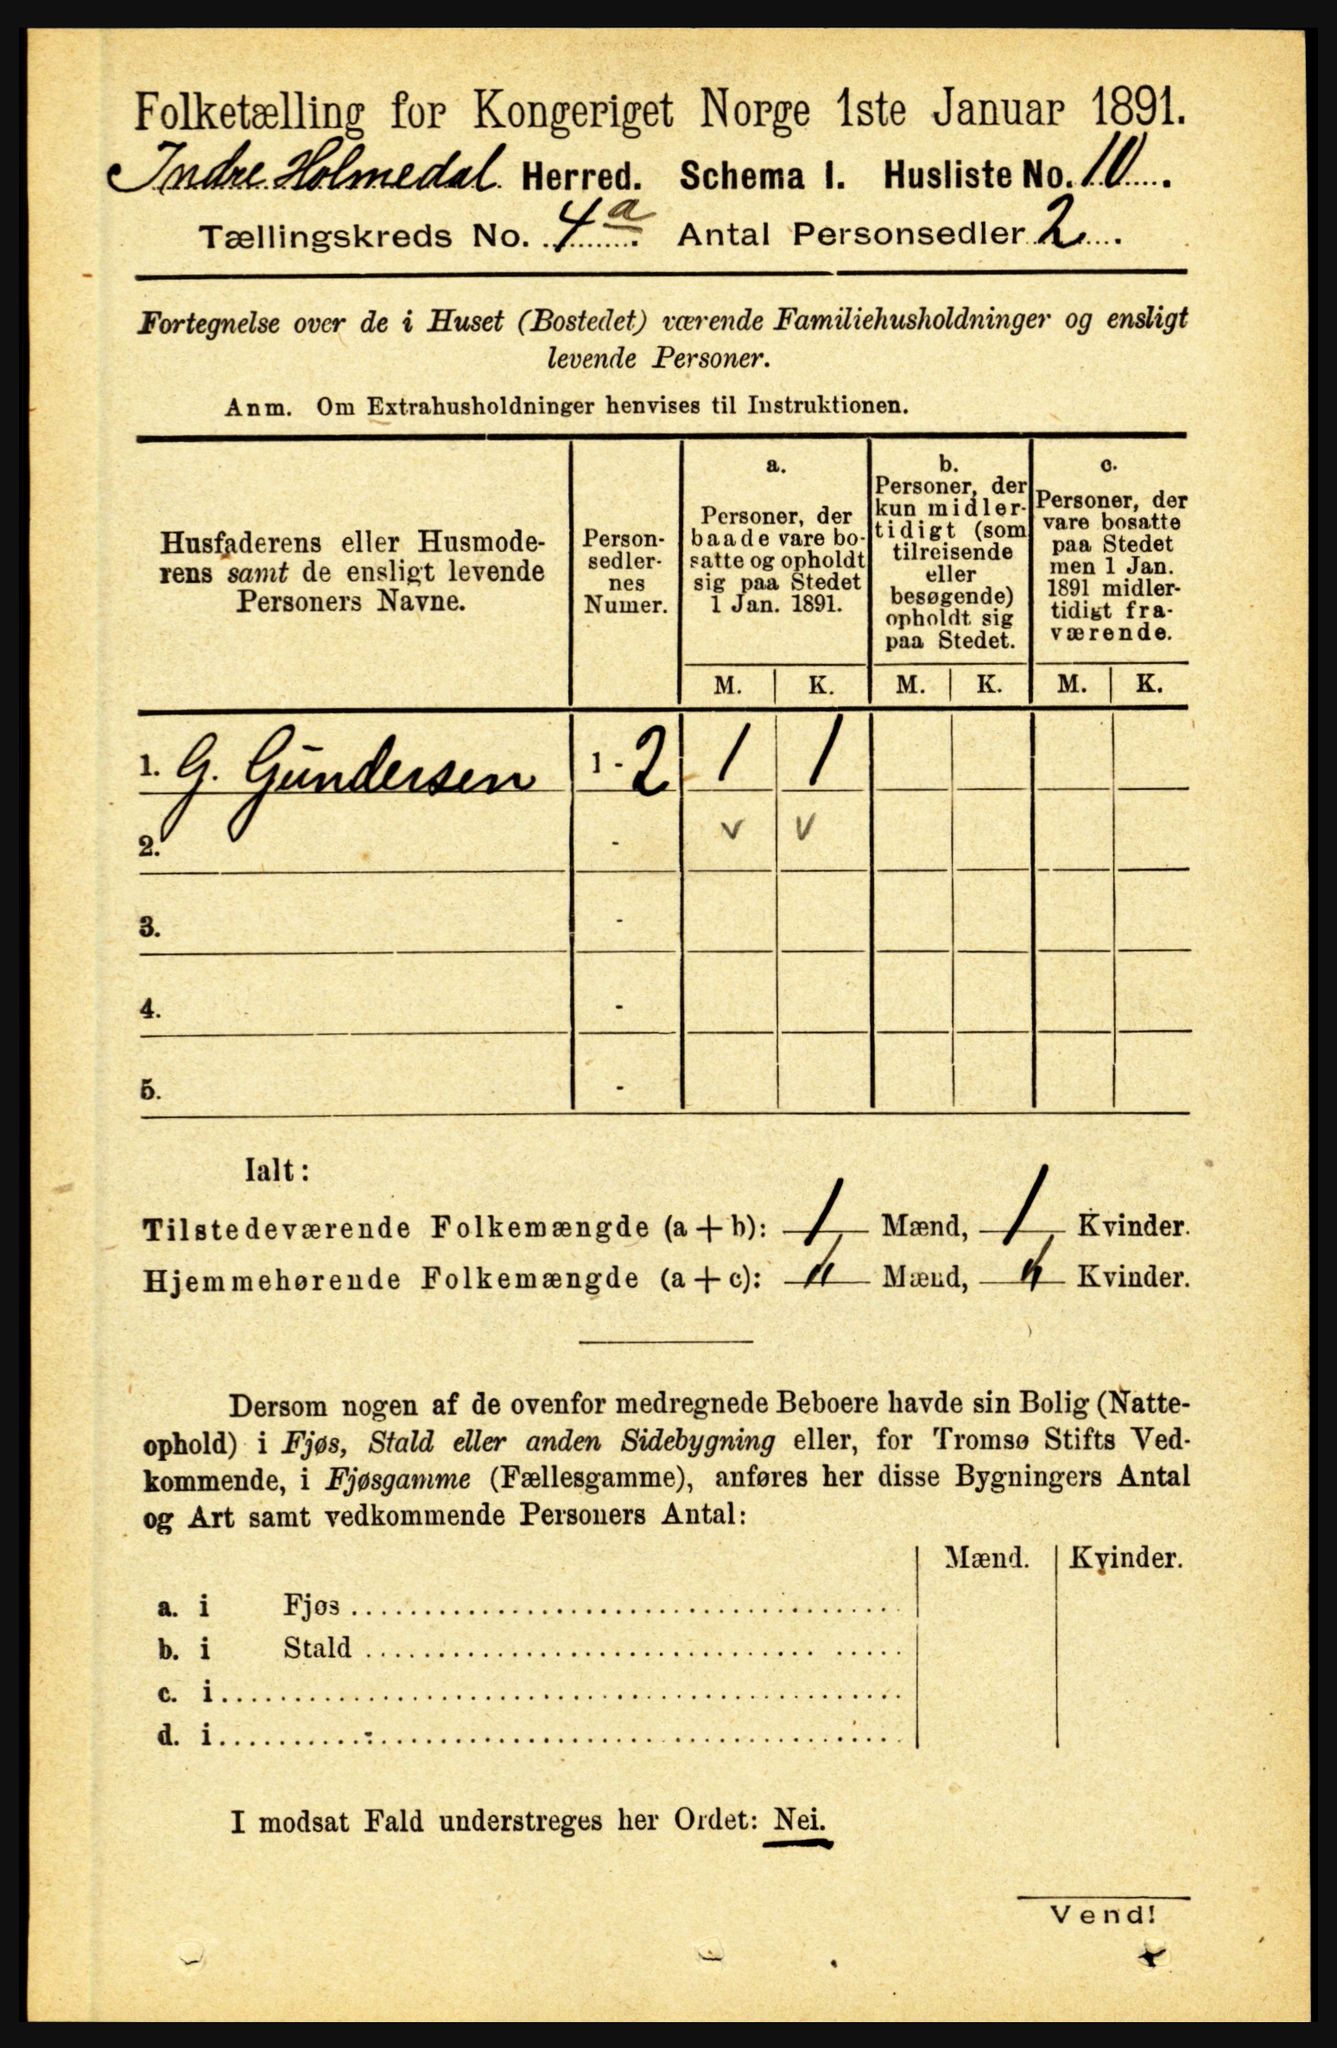 Folketælling for Kongeriget Norge 1ste Januar 1891.
Indre Holmedal Herred. Schema I. Husliste No. 10.
Tællingskreds No. 4a. Antal Personsedler 2.
Fortegnelse over de i Huset (Bostedet) værende Familiehusholdninger og ensligt
levende Personer.
Anm. Om Extrahusholdninger henvises til Instruktionen.
Husfaderens eller Husmode-
rens samt de ensligt levende
Personers Navne.
Person-
sedler-
nes
Numer.
a.
Personer, der
baade vare bo-
satte og opholdt
sig paa Stedet
1 Jan. 1891.
b.
Personer, der
kun midler-
tidigt (som
tilreisende
eller
besøgende)
opholdt sig
paa Stedet.
c.
Personer, der
vare bosatte
paa Stedet
men 1 Jan.
1891 midler-
tidigt fra-
værende.
M. K. M. K. M. K.
1. G. Gundersen 1 - 2 1 1
2. - v v
3. -
4. -
5. -
Ialt:
Tilstedeværende Folkemængde (a + b): 1 Mænd, 1 Kvinder.
Hjemmehørende Folkemængde (a + c): Mænd, Kvinder.
Dersom nogen af de ovenfor medregnede Beboere havde sin Bolig (Natte-
ophold) i Fjøs, Stald eller anden Sidebygning eller, for Tromsø Stifts Ved-
kommende, i Fjøsgamme (Fællesgamme), anføres her disse Bygningers Antal
og Art samt vedkommende Personers Antal:
Mænd. Kvinder.
a. i Fjøs
b. i Stald
c. i
d. i
I modsat Fald understreges her Ordet: Nei.
Vend!